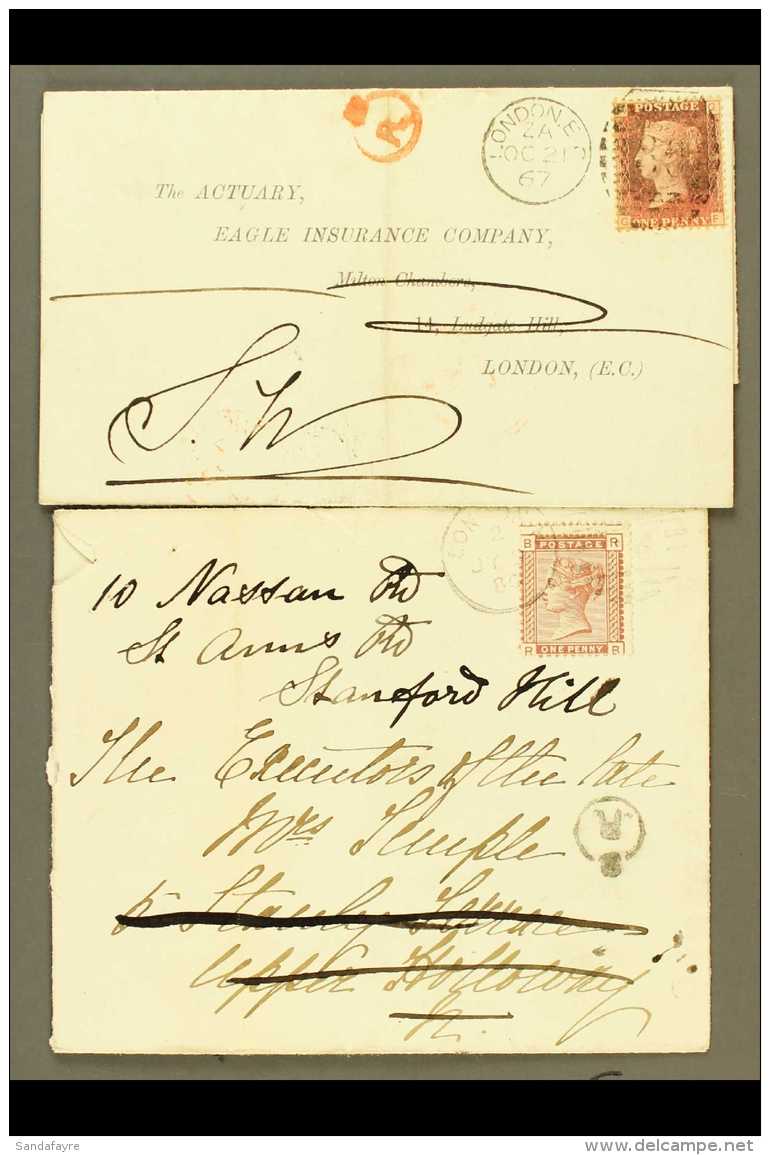 LONDON.E.C
ZA
OC 21
67
R
POSTAGE
ONE PENNY
G E
The ACTUARY,
EAGLE INSURANCE COMPANY,
Milton Chambers,
14, Ludgate Hill,
LONDON, (E.C.)
S.W
B POSTAGE R
R ONE PENNY B
10 Nassau Rd
St Anns Rd
Stamford Hill
The Executors of the late
Mrs Temple
5 Stanley Terrace
Upper Holloway
N.
R
Sandafayre
www.delcampe.net